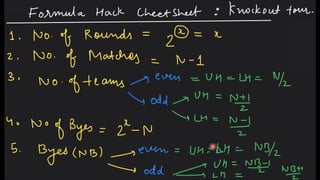 Formula Hack Cheetsheet : Knockout tour.
1. No. of Rounds = 2ˣ = x
2. No. of Matches = N-1
3. No. of teams → even = UH = LH = N/2
→ odd → UH = N+1/2
→ LH = N-1/2
4. No of Byes = 2ˣ - N
5. Byes (NB) → even = UH = LH = NB/2
→ odd → UH = NB-1/2
→ LH = NB+1/2